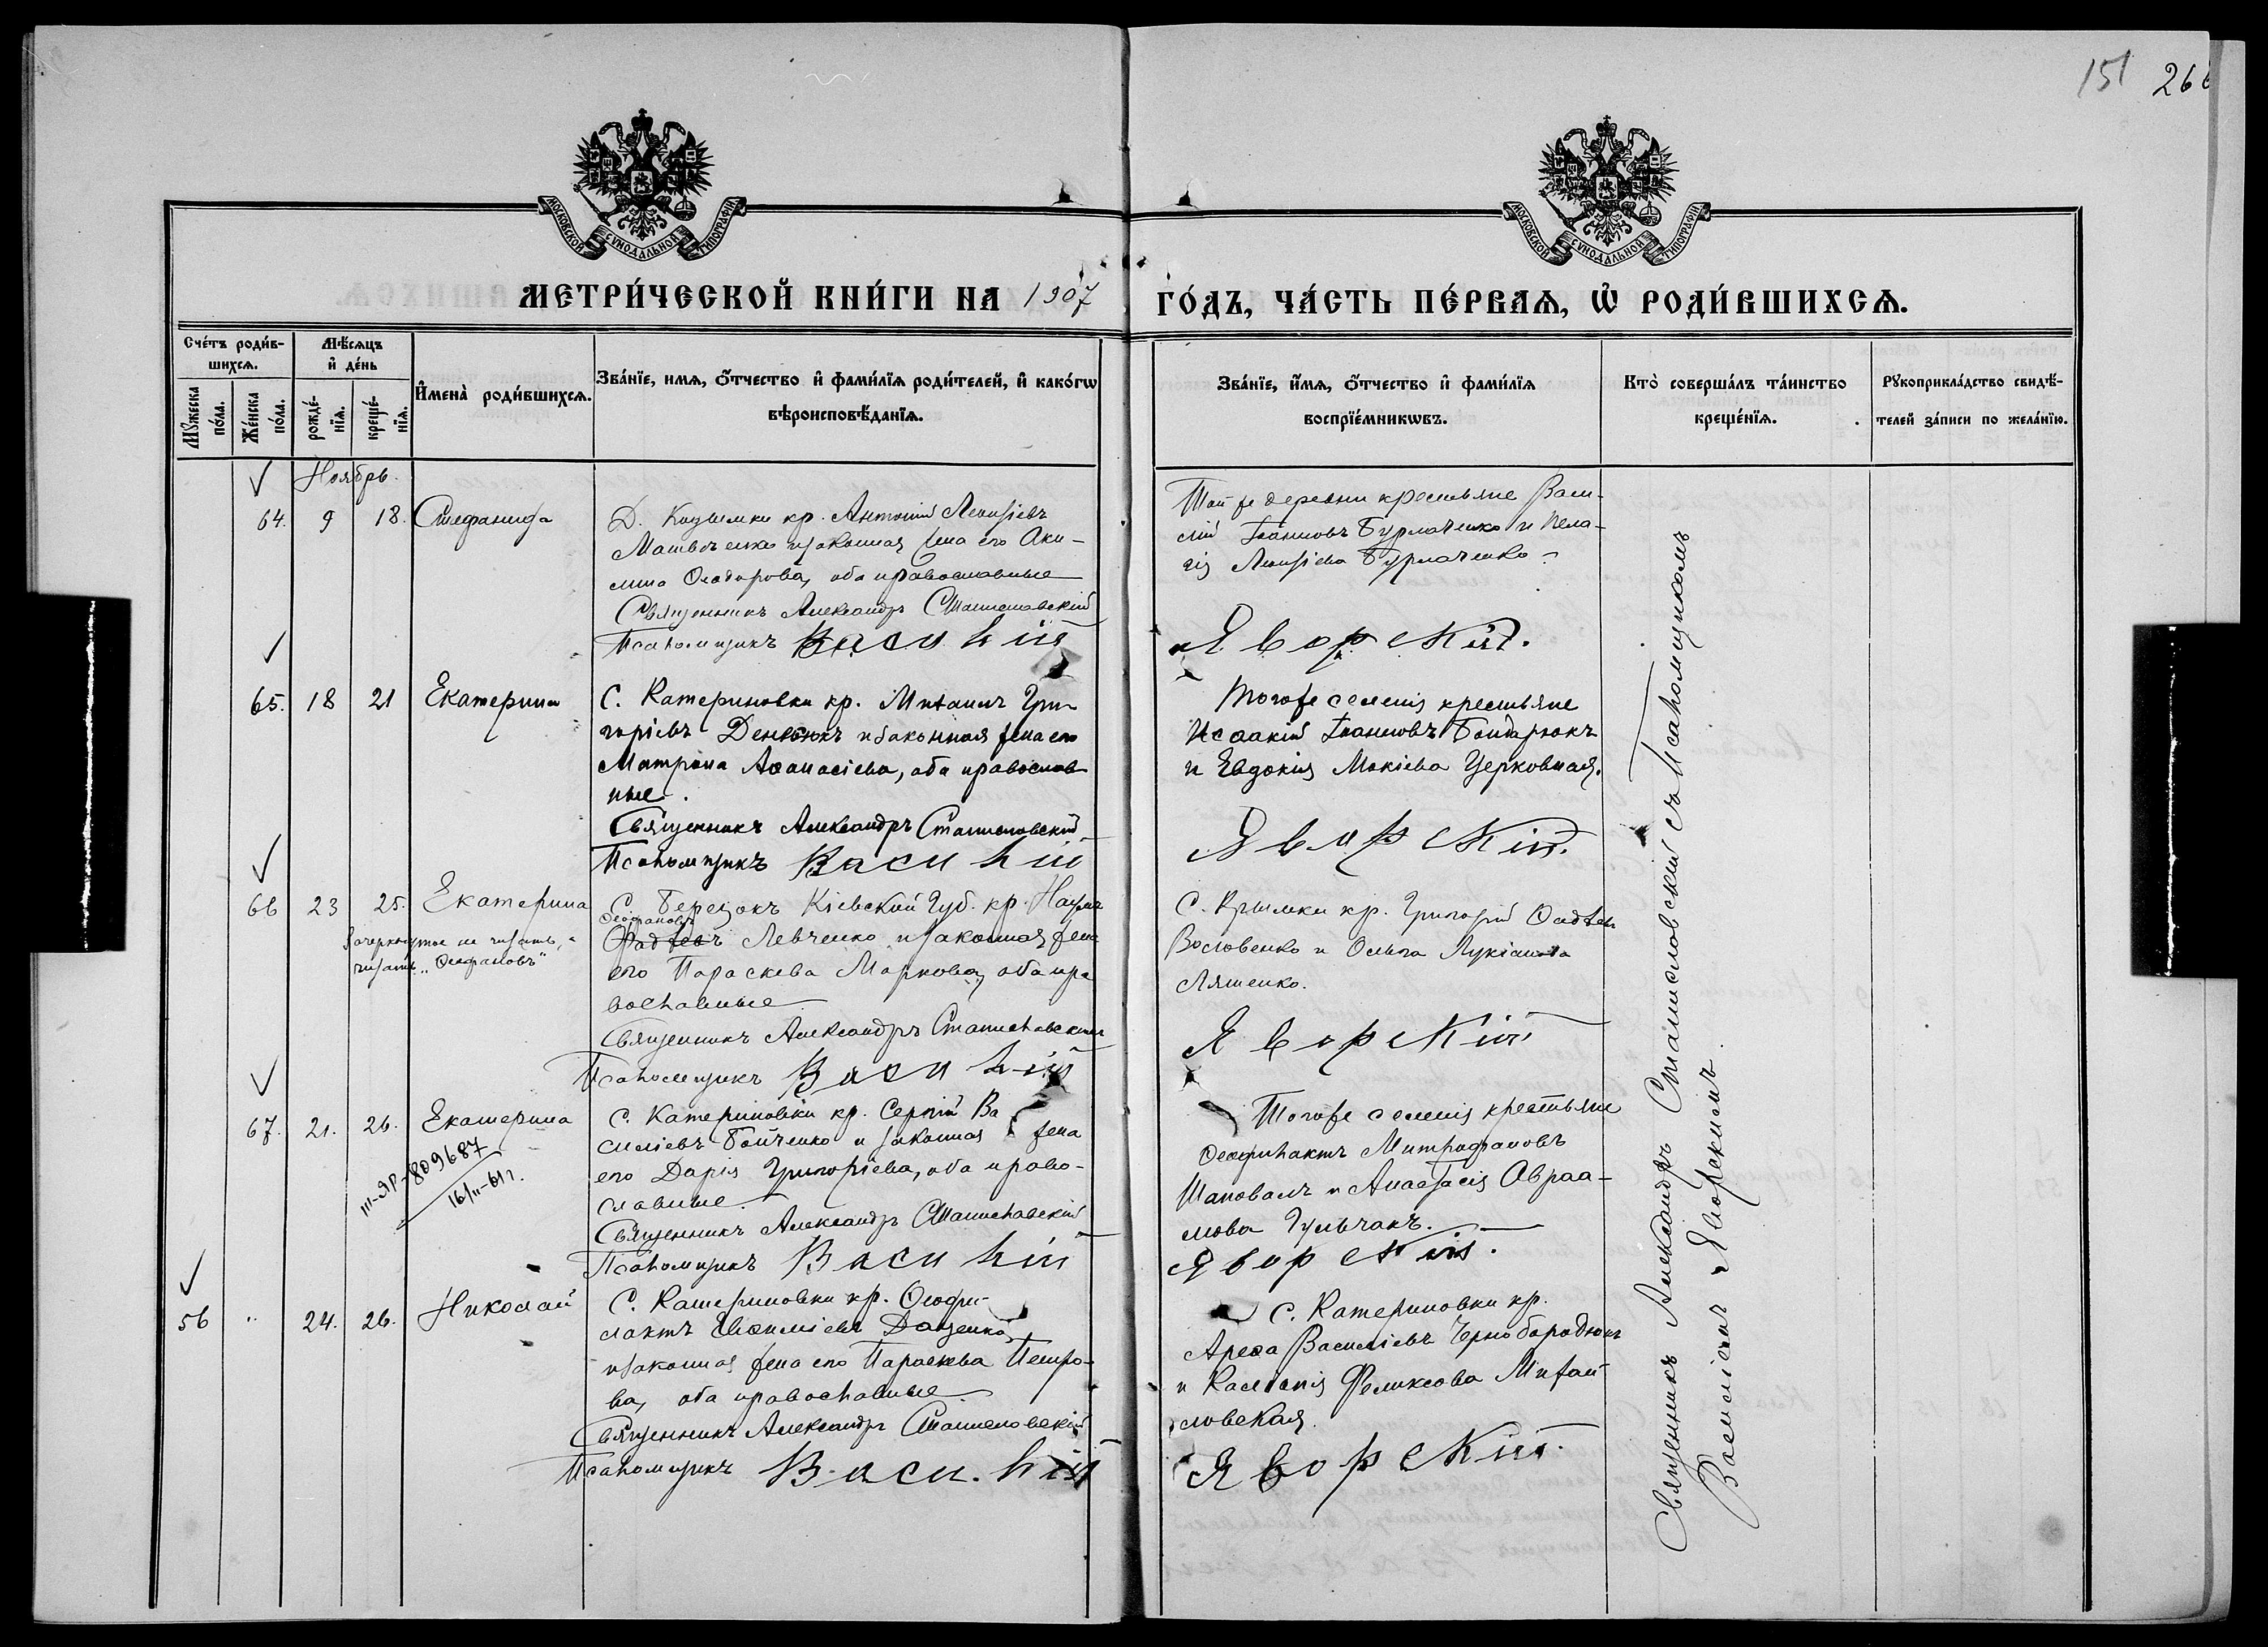 151 266
МОСКОВСКОЙ СѴНОДАЛЬНОЙ ТИПОГРАФІИ
МОСКОВСКОЙ СѴНОДАЛЬНОЙ ТИПОГРАФІИ
МЕТРИ́ЧЕСКОЙ КНИ́ГИ НА 1907 ГО́ДЪ, ЧА́СТЬ ПЕ́РВАѦ, Ѡ҆ РОДИ́ВШИХСѦ.
Сче́тъ роди́в-
шихсѧ.
Мꙋ́жеска по́ла.
Же́нска по́ла.
Мѣ́сѧцъ
и҆ де́нь
рожде́-
нїѧ.
креще́-
нїѧ.
И҆мена̀ роди́вшихсѧ.
Зва́нїе, имѧ, ѻ҆́тчество и҆ фами́лїѧ роди́телей, и҆ како́гѡ
вѣроисповѣ́данїѧ.
Зва́нїе, и҆́мѧ, ѻ҆́тчество и҆ фами́лїѧ
воспрїе́мникѡвъ.
Кто̀ соверша́лъ та́инство
креще́нїѧ.
Рꙋкоприкла́дство свидѣ́-
телей за́писи по жела́нїю.
Ноябрь.
64. 9 18. Стефанида
Д. Козымки кр. Антоній Леонтіевъ
законная жена его Аки-
лина Ѳеодорова, оба православные
Священникъ Александръ Станиславскій
Псаломщикъ Василій
Той же деревни крестьяне Васи-
лій Іоанновъ Бурлаченко и Пела-
гія Леонтіева Бурлаченко
Яворскій.
65. 18 21 Екатерина
С. Катериновки кр. Михаилъ Гри-
горіевъ и законная жена его
Матрона Аѳанасіева, оба православ
ные.
Священникъ Александръ Станиславскій
Псаломщикъ Василій
Того же селенія крестьяне
Исаакій Іоанновъ Бондарюкъ
и Евдокія Мокіева Церковная.
Яворскій.
66 23 25. Екатерина
Зачеркнутое не читать, а
читать „Ѳеофановъ“
С. Березокъ Кіевской Губ. кр. Наумъ
Ѳеофановъ
Ѳаддеевъ Левченко и законная жена
его Параскева Маркова, оба пра
вославные
Священникъ Александръ Станиславскій
Псаломщикъ Василій
С. Крымки кр. Григорій Ѳаддеевъ
и Ольга Лукіанова
Ляшенко.
Яворскій
67. 21. 26. Екатерина
III-ЯР-809687
16/II-61 г.
С. Катериновки кр. Сергій Ва
силіевъ Бойченко и законная жена
его Дарія Григоріева, оба право-
славные.
Священникъ Александръ Станиславскій
Псаломщикъ Василій
Того же селенія крестьяне
Ѳеофилактъ Митрофановъ
Шаповалъ и Анастасія Авраа-
мова Гульчакъ.
Яворскій.
56 " 24. 26. Николай
С. Катериновки кр. Ѳеофи-
лактъ Доценко
и законная жена его Параскева Петро-
ва, оба православные
Священникъ Александръ Станиславскій
Псаломщикъ Василій
С. Катериновки кр.
Ареѳа Василіевъ Чернобородюкъ
и Феликсова Михай
ловская.
Яворскій.
Священникъ Александръ Станиславскій съ Псаломщикомъ
Василіемъ Яворскимъ.